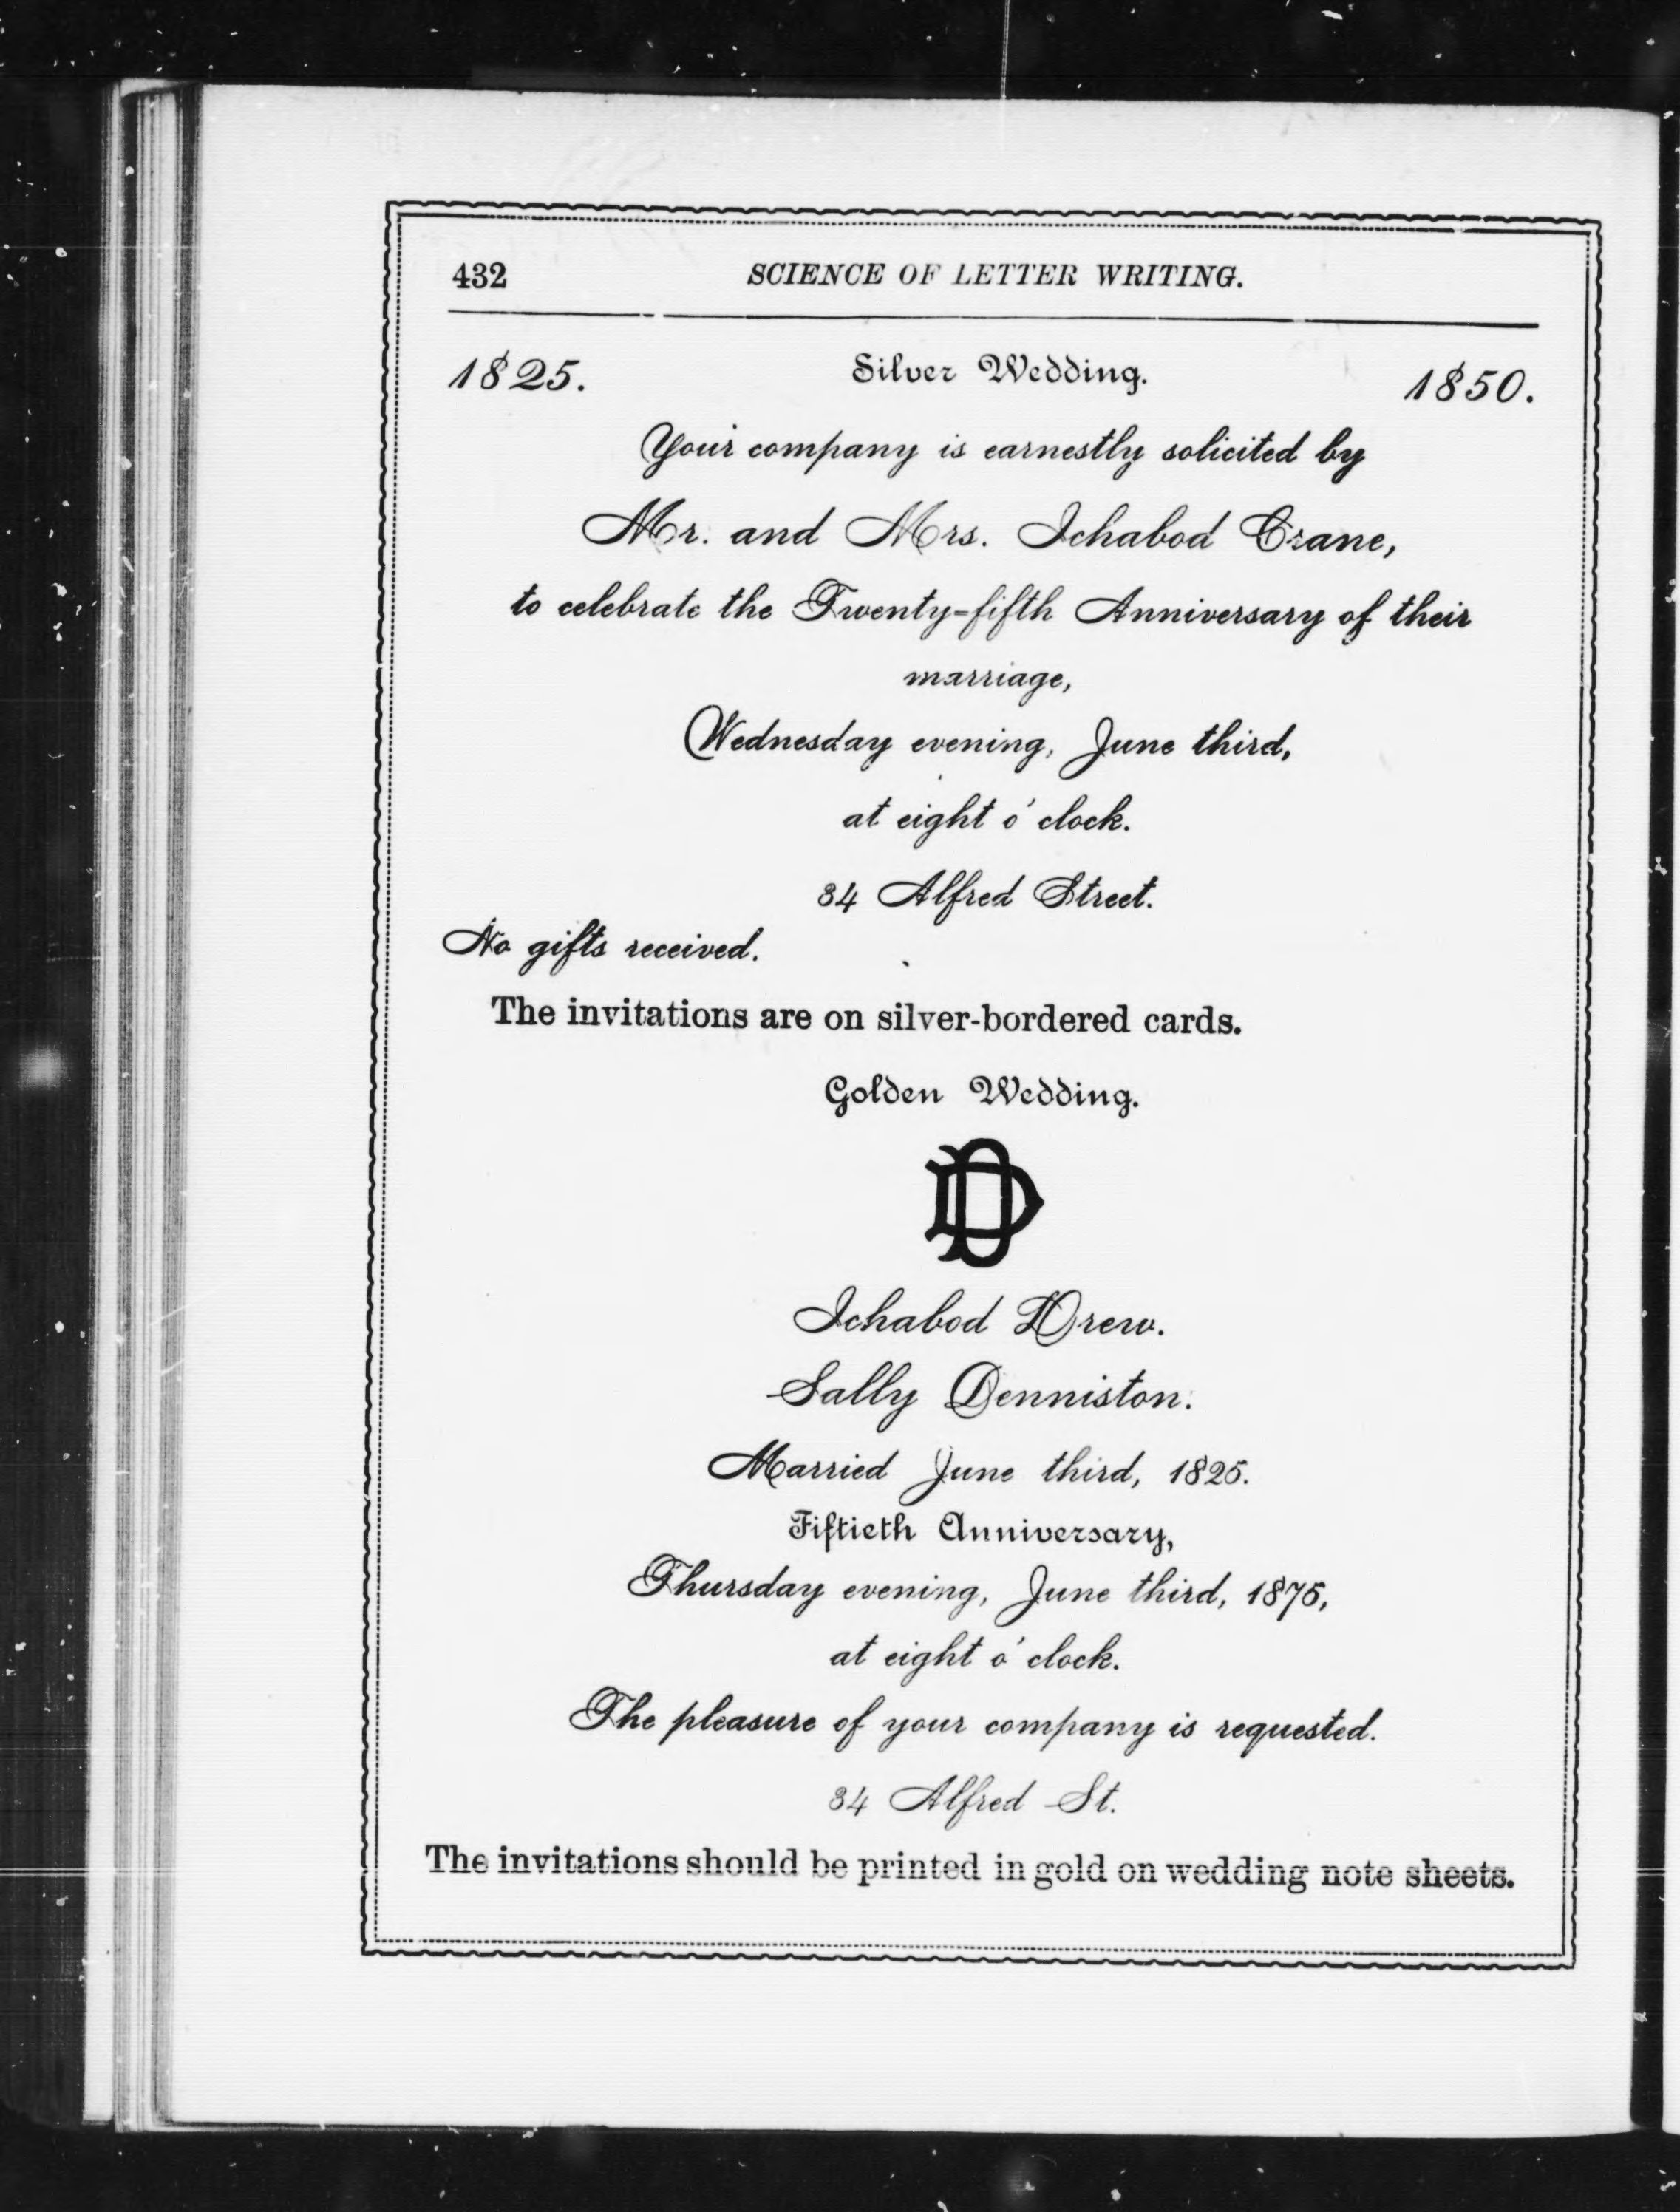 432 SCIENCE OF LETTER WRITING.
1825. Silver Wedding. 1850.
Your company is earnestly solicited by
Mr. and Mrs. Ichabod Crane,
to celebrate the Twenty-fifth Anniversary of their
marriage,
Wednesday evening, June third,
at eight o'clock.
34 Alfred Street.
No gifts received.
The invitations are on silver-bordered cards.
Golden Wedding.
DD
Ichabod Drew.
Sally Denniston.
Married June third, 1825.
Fiftieth Anniversary,
Thursday evening, June third, 1875,
at eight o'clock.
The pleasure of your company is requested.
34 Alfred St.
The invitations should be printed in gold on wedding note sheets.